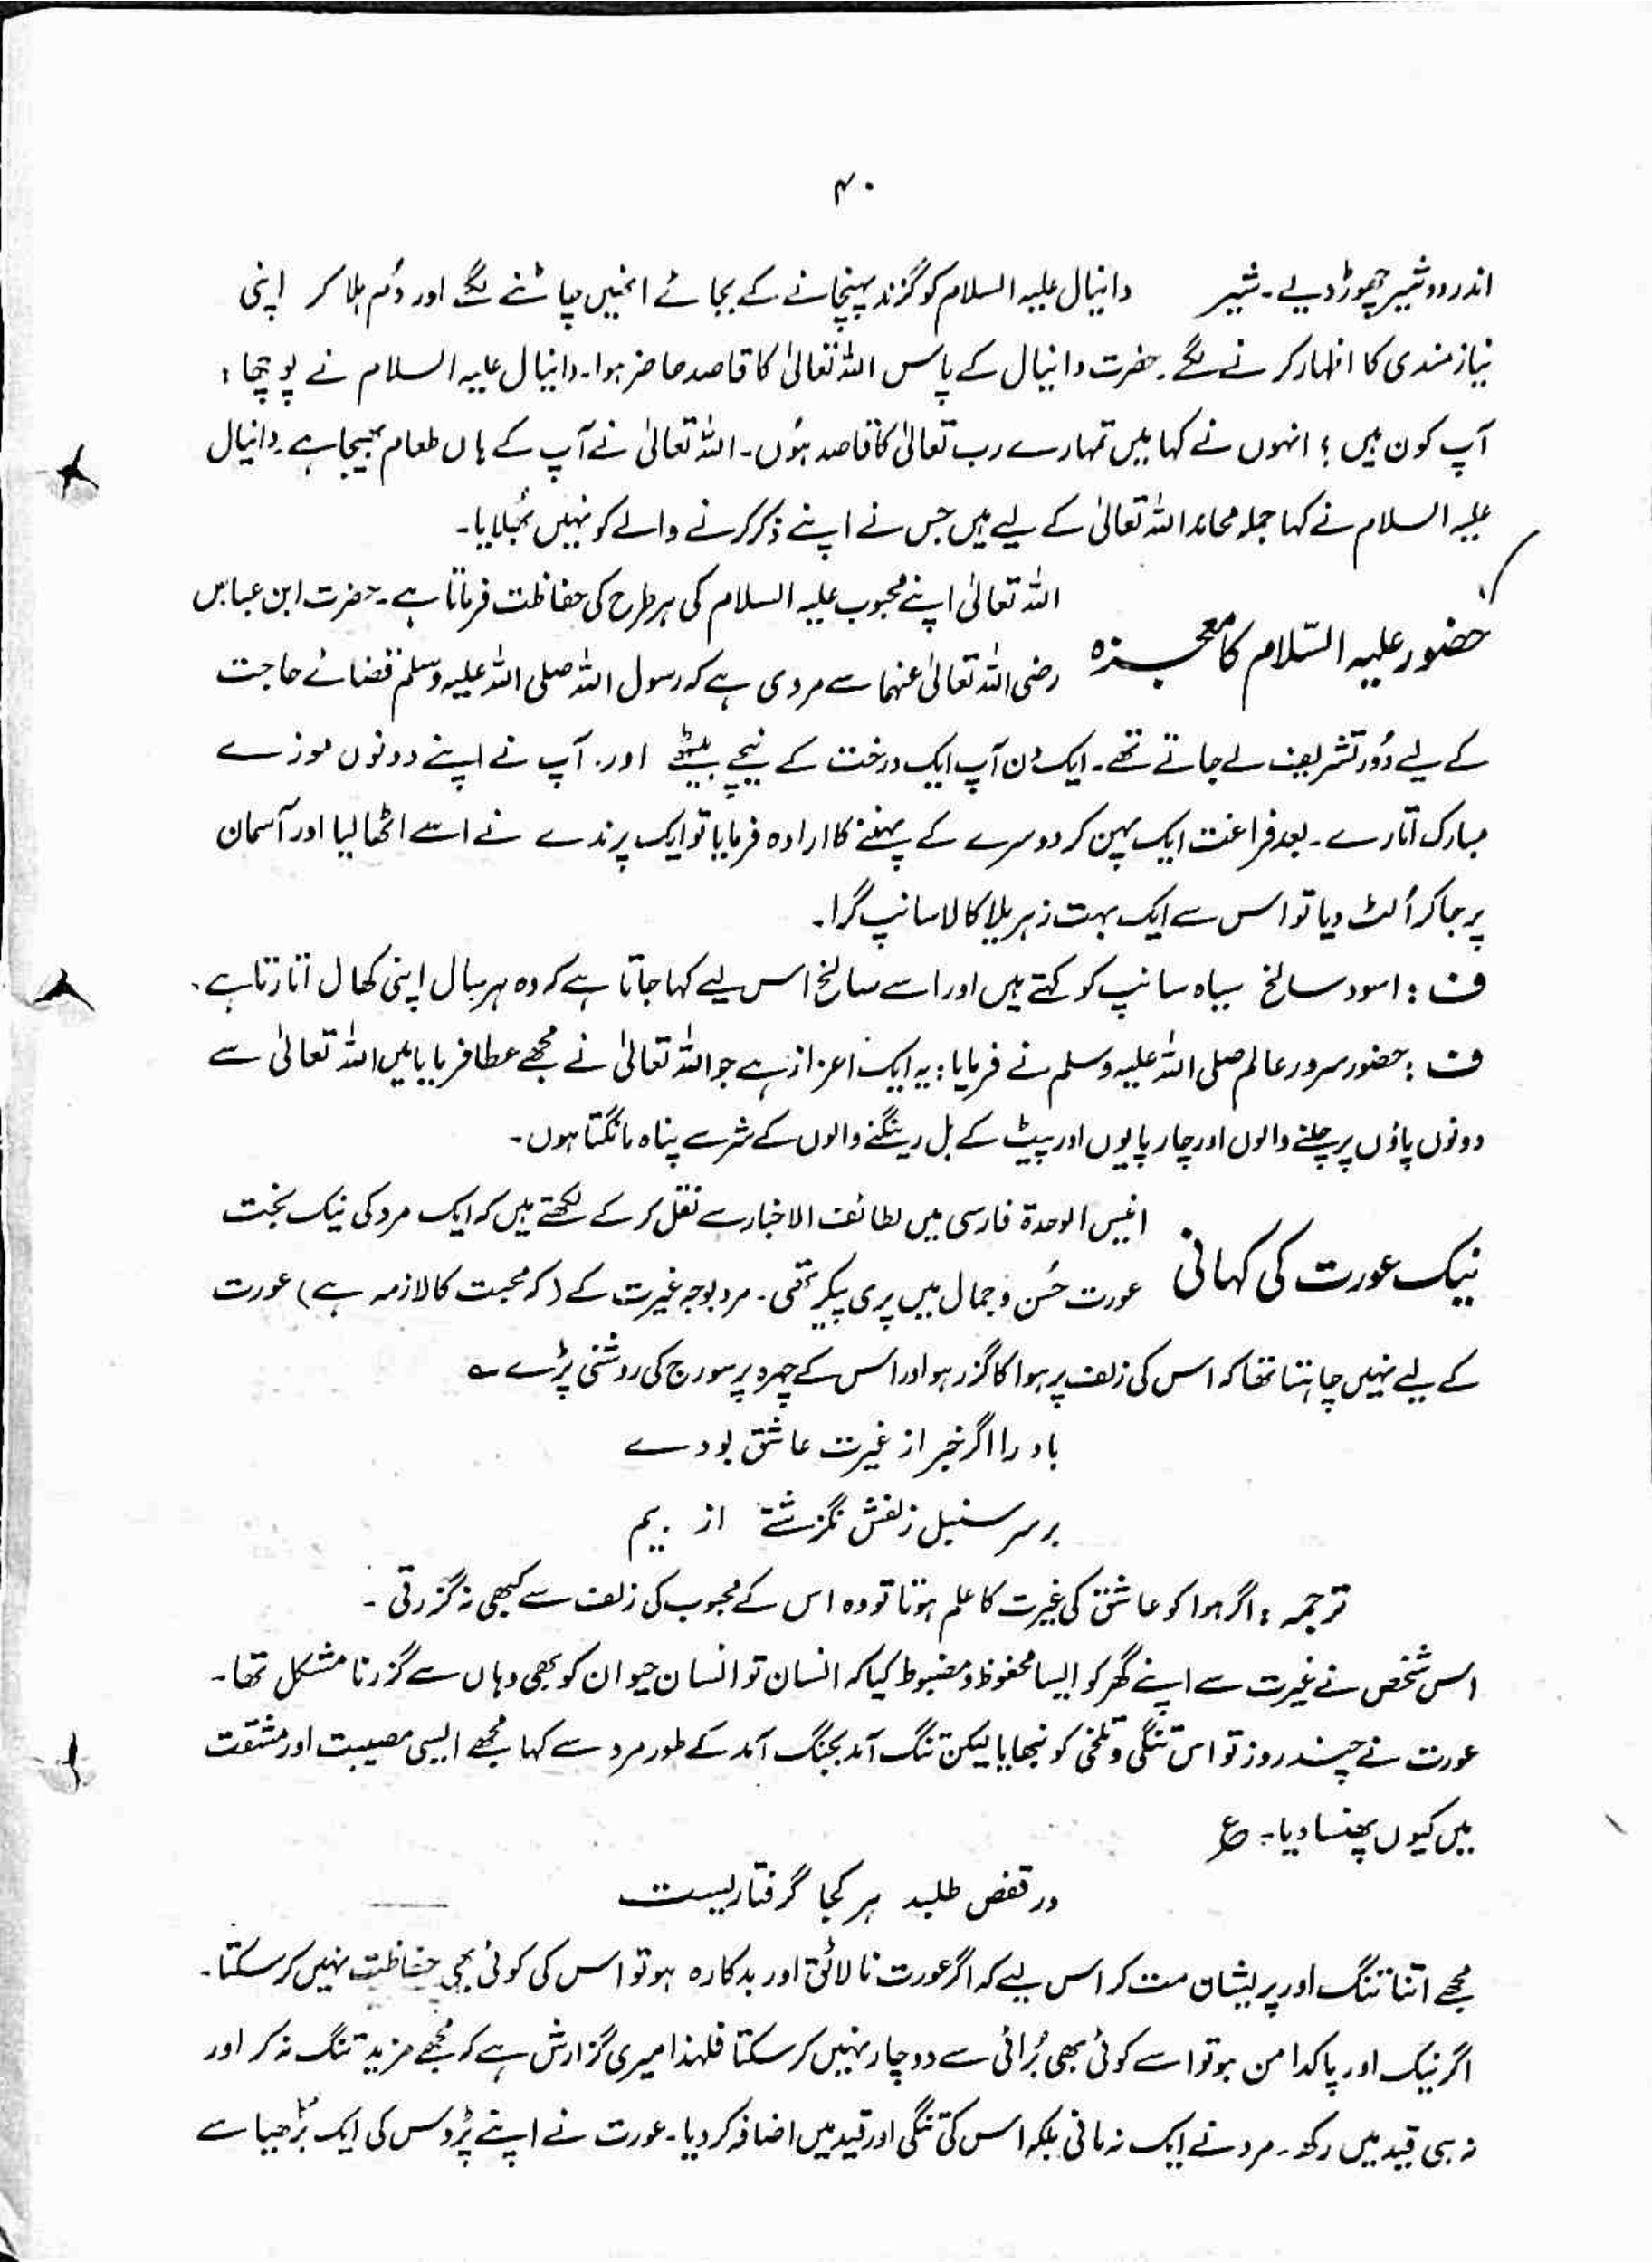 ۴۰
اندر دو شیر چھوڑ دیے۔ شیر دانیال علیہ السلام کو گزند پہنچانے کے بجائے انھیں چاٹنے لگے اور دُم ہلا کر اپنی
نیاز مندی کا اظہار کرنے لگے۔ حضرت دانیال کے پاس اللہ تعالیٰ کا قاصد حاضر ہوا۔ دانیال علیہ السلام نے پوچھا :
آپ کون ہیں ؟ انہوں نے کہا میں تمہارے رب تعالیٰ کا قاصد ہُوں۔ اللہ تعالیٰ نے آپ کے ہاں طعام بھیجا ہے۔ دانیال
علیہ السلام نے کہا جملہ محامد اللہ تعالیٰ کے لیے ہیں جس نے اپنے ذکر کرنے والے کو نہیں بُھلایا۔
حضور علیہ السّلام کا معجزہ
اللہ تعالیٰ اپنے محبوب علیہ السلام کی ہر طرح کی حفاظت فرماتا ہے۔ حضرت ابن عباس
رضی اللہ تعالیٰ عنہما سے مروی ہے کہ رسول اللہ صلی اللہ علیہ وسلم قضائے حاجت
کے لیے دُور تشریف لے جاتے تھے۔ ایک دن آپ ایک درخت کے نیچے بیٹھے اور آپ نے اپنے دونوں موزے
مبارک اتارے۔ بعد فراغت ایک پہن کر دوسرے کے پہننے کا ارادہ فرمایا تو ایک پرندے نے اسے اٹھا لیا اور آسمان
پر جا کر اُلٹ دیا تو اس سے ایک بہت زہریلا کالا سانپ گرا۔
ف : اسود سالخ سیاہ سانپ کو کہتے ہیں اور اسے سالخ اس لیے کہا جاتا ہے کہ وہ ہر سال اپنی کھال اتارتا ہے۔
ف : حضور سرور عالم صلی اللہ علیہ وسلم نے فرمایا : یہ ایک اعزاز ہے جو اللہ تعالیٰ نے مجھے عطا فرمایا میں اللہ تعالیٰ سے
دونوں پاؤں پر چلنے والوں اور چارپایوں اور پیٹ کے بل رینگنے والوں کے شر سے پناہ مانگتا ہوں۔
نیک عورت کی کہانی
انیس الوحدۃ فارسی میں لطائف الاخبار سے نقل کر کے لکھتے ہیں کہ ایک مرد کی نیک بخت
عورت حُسن و جمال میں پری پیکر تھی۔ مرد بوجہ غیرت کے (کہ محبت کا لازمہ ہے) عورت
کے لیے نہیں چاہتا تھا کہ اس کی زلف پر ہوا کا گزر ہو اور اس کے چہرہ پر سورج کی روشنی پڑے ؎
باد را اگر خبر از غیرت عاشق بودے
بر سر سنبل زلفش نگزشتے از بیم
ترجمہ : اگر ہوا کو عاشق کی غیرت کا علم ہوتا تو وہ اس کے محبوب کی زلف سے کبھی نہ گزرتی۔
اس شخص نے غیرت سے اپنے گھر کو ایسا محفوظ و مضبوط کیا کہ انسان تو انسان حیوان کو بھی وہاں سے گزرنا مشکل تھا۔
عورت نے چند روز تو اس تنگی و تلخی کو نبھایا لیکن تنگ آمد بجنگ آمد کے طور مرد سے کہا مجھے ایسی مصیبت اور مشقت
میں کیوں پھنسا دیا۔ ع
در قفص طلبد ہر کجا گرفتاریست
مجھے اتنا تنگ اور پریشان مت کر اس لیے کہ اگر عورت نالائق اور بدکارہ ہو تو اس کی کوئی بھی حفاظت نہیں کر سکتا۔
اگر نیک اور پاکدامن ہو تو اسے کوئی بھی بُرائی سے دوچار نہیں کر سکتا فلہٰذا میری گزارش ہے کہ مجھے مزید تنگ نہ کر اور
نہ ہی قید میں رکھ۔ مرد نے ایک نہ مانی بلکہ اس کی تنگی اور قید میں اضافہ کر دیا۔ عورت نے اپنے پڑوس کی ایک بڑھیا سے